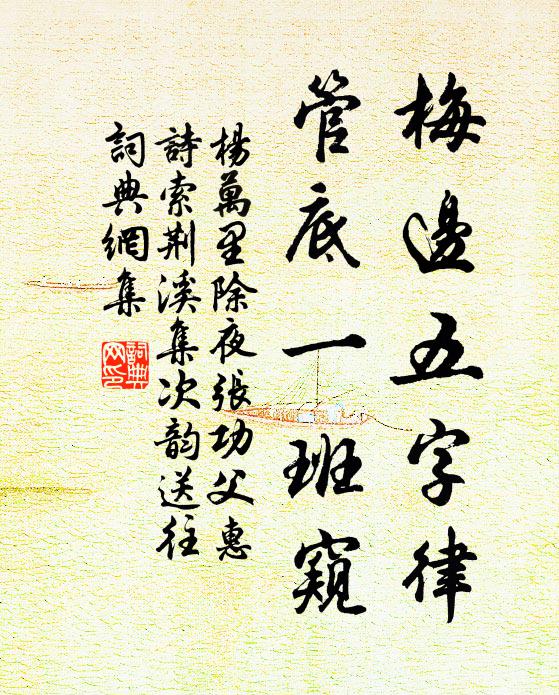 梅邊五字律
管底一班窺
楊萬里除夜張功父惠
詩索荆溪集次韵送往
詞典網集
詞典
网印